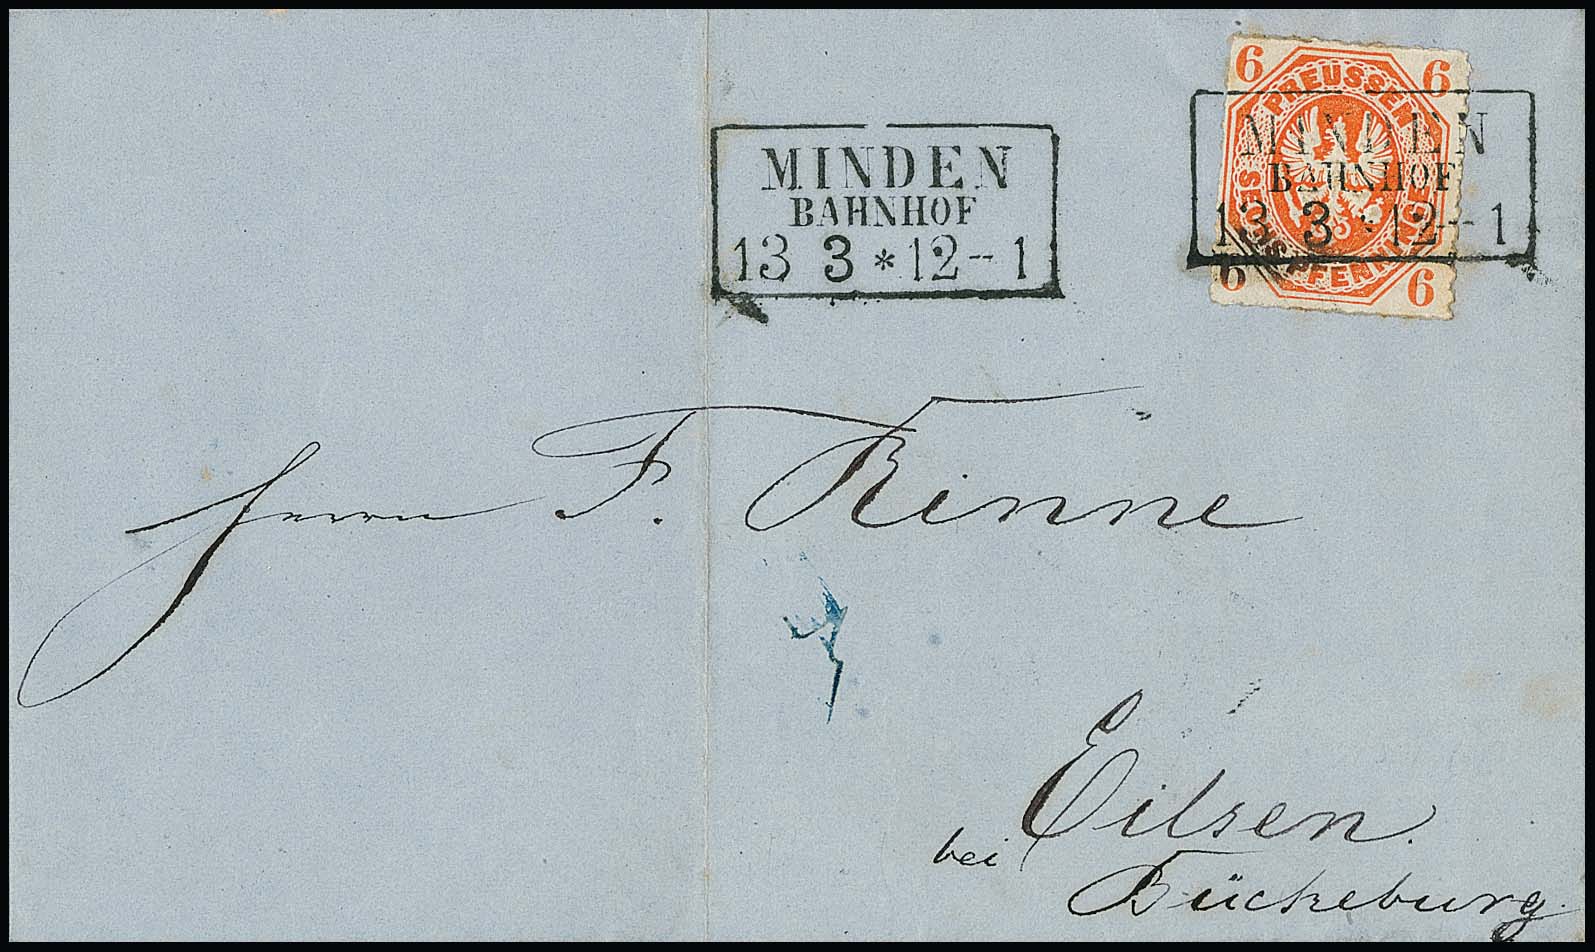 6 6
PREUSSEN
SECHS PFENNINGE
6 6
MINDEN
BAHNHOF
13 3 * 12--1
MINDEN
BAHNHOF
13 3 * 12--1
Herrn F. Rinne
Eilsen.
bei Bückeburg.